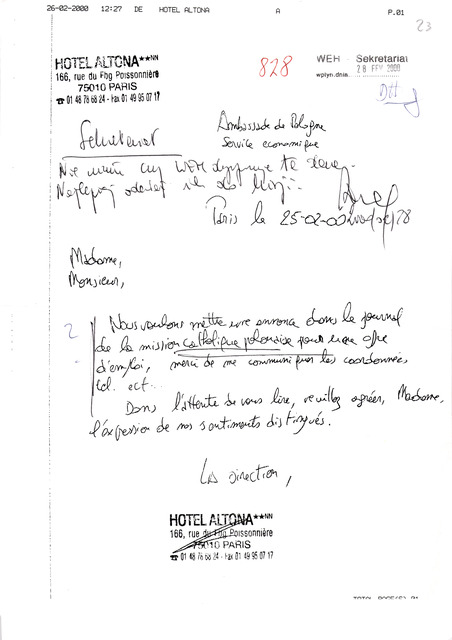 26-02-2000 12:27 DE HOTEL ALTONA A P.01
23
HOTEL ALTONA**NN
166, rue du Fbg Poissonnière
75010 PARIS
☎ 01 48 78 68 24 - Fax 01 49 95 07 17
828
WEH - Sekretariat
wpłyn. dnia 28 FEV 2000
Ambassade de Pologne
Service économique
Sekretariat
Nie wiem czy WEH dysponuje te
Najlepiej odesłać ich do Misji.
Paris le 25-02-00
Madame,
Monsieur,
2
Nous voulons mettre une annonce dans le journal
de la mission catholique polonaise pour une offre
d'emploi, merci de me communiquer les coordonnées
tel. ect.
Dans l'attente de vous lire, veuillez agréer, Madame,
l'expression de nos sentiments distingués.
La Direction,
HOTEL ALTONA**NN
166, rue du Fbg Poissonnière
75010 PARIS
☎ 01 48 78 68 24 - Fax 01 49 95 07 17
TOTAL PAGE(S) 01